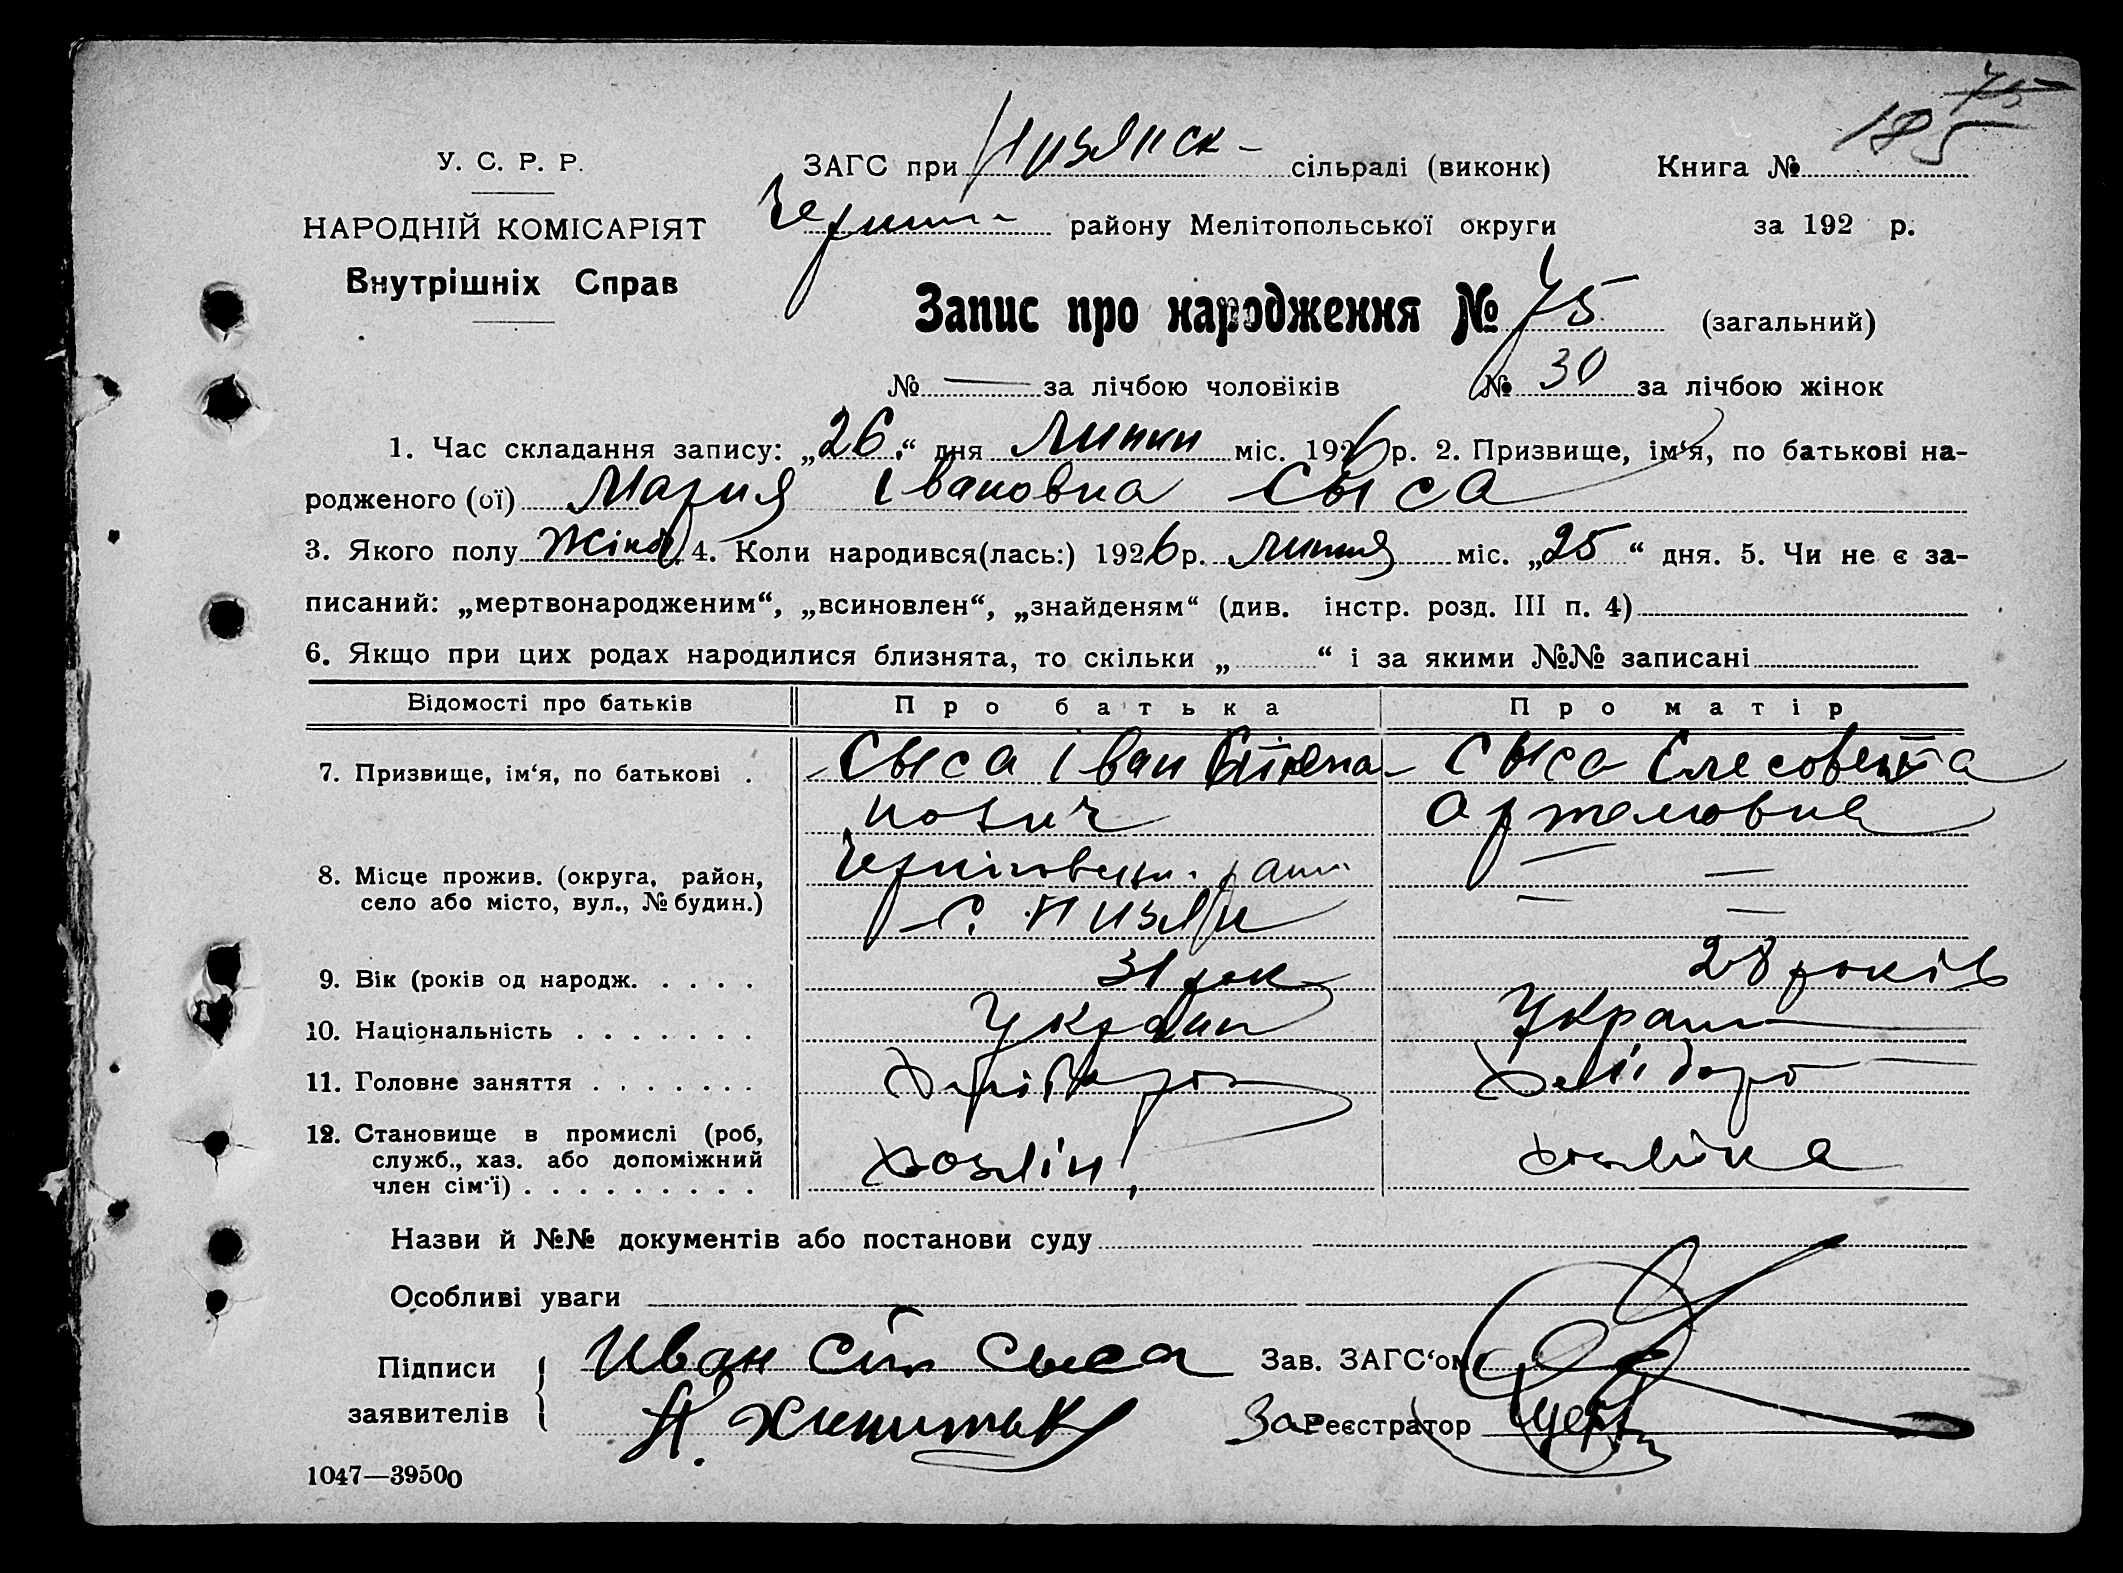 75
185
У. С. Р. Р.
ЗАГС при Низянск- сільраді (виконк) Книга №
НАРОДНІЙ КОМІСАРІЯТ
району Мелітопольської округи за 192 р.
Внутрішніх Справ
Запис про народження № 75 (загальний)
№ — за лічбою чоловіків № 30 за лічбою жінок
1. Час складання запису: „26“ дня липня міс. 1926 р. 2. Призвище, ім‘я, по батькові на-
родженого (ої) Мария Івановна Сыса
3. Якого полу Жіноч. 4. Коли народився(лась:) 1926 р. липня міс. „25“ дня. 5. Чи не є за-
писаний: „мертвонародженим“, „всиновлен“, „знайденям“ (див. інстр. розд. III п. 4)
6. Якщо при цих родах народилися близнята, то скільки „ “ і за якими №№ записані
Відомості про батьків Про батька Про матір
7. Призвище, ім‘я, по батькові . Сыса Іван Степа- Сыса Елесовета
нович Артемовна
8. Місце прожив. (округа, район, Чернiговськ. рай — —
село або місто, вул., № будин.) с. Низяни — —
9. Вік (років од народж. . . . . 31 рок 28 років
10. Національність . . . . . . . Україн Україн
11. Головне заняття . . . . . . . Хлібороб Хлібороб
12. Становище в промислі (роб,
служб., хаз. або допоміжний хозяін хозяіка
член сім‘ї) . . . . . . . . .
Назви й №№ документів або постанови суду
Особливі уваги
Підписи Иван Сте Сыса Зав. ЗАГС‘ом
заявителів За Реєстратор
1047—39500